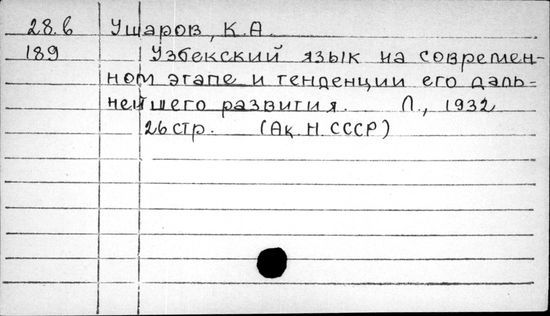 28.в Ушаров, К.А.
189 Узбекский язык на современ-
ном этапе и тенденции его даль-
нейшего развития. Л., 1932
26стр. (Ак.Н.СССР)